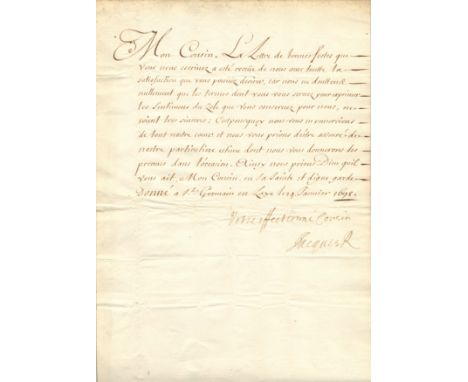 Mon Cousin. La Lettre de bonnes festes que
vous nous escrivez a esté receüe de nous avec toutte la
satisfaction que vous pouviez desirer, car nous ne douttons
nullement que les termes dont vous vous servez pour exprimer
les sentimens du zele que vous conservez pour nous, ne
soient tres sinceres; C'estpourquoy nous vous en remercions
de tout nostre coeur et nous vous prions d'estre asseuré de
nostre particuliere estime dont nous vous donnerons des
preuves dans l'occasion. Ainsy nous prions Dieu qu'il
vous ait, Mon Cousin, en sa sainte et digne garde
Donné a St. Germain en Laye le 14 Janvier 1698.
Vostre affectionné Cousin
Jacques R